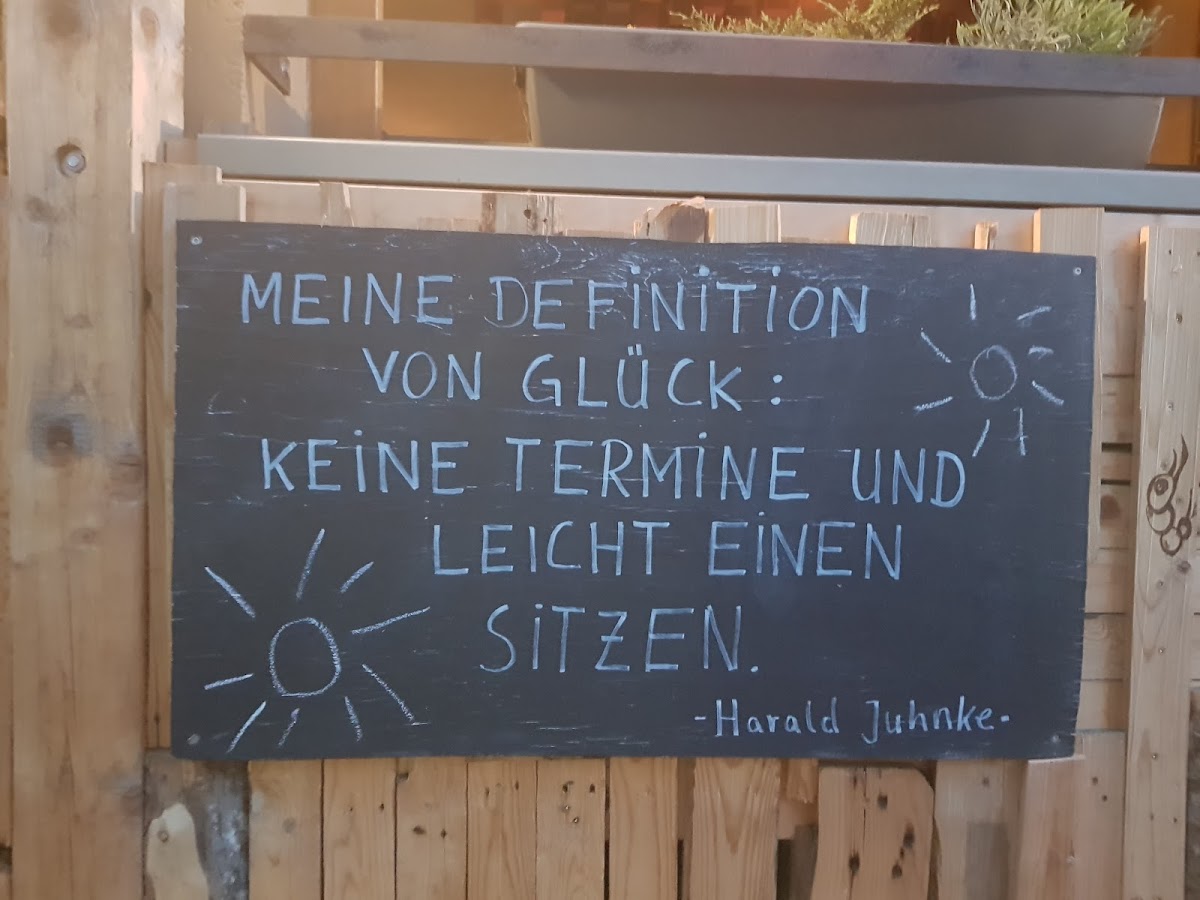 MEINE DEFINITION
VON GLÜCK:
KEINE TERMINE UND
LEICHT EINEN
SITZEN.
-Harald Juhnke-